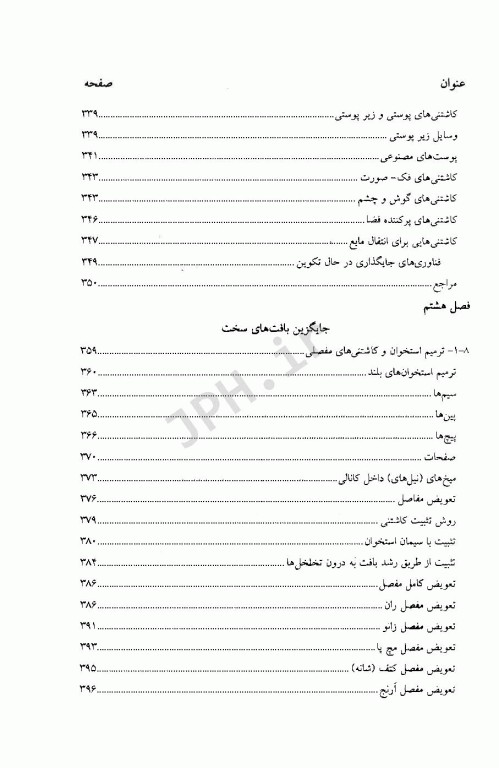 عنوان صفحه
کاشتنی‌های پوستی و زیر پوستی ۳۳۹
وسایل زیر پوستی ۳۳۹
پوست‌های مصنوعی ۳۴۱
کاشتنی‌های فک- صورت ۳۴۳
کاشتنی‌های گوش و چشم ۳۴۳
کاشتنی‌های پرکننده فضا ۳۴۶
کاشتنی‌هایی برای انتقال مایع ۳۴۷
فناوری‌های جایگذاری در حال تکوین ۳۴۹
مراجع ۳۵۰
فصل هشتم
جایگزین بافت‌های سخت
۸-۱- ترمیم استخوان و کاشتنی‌های مفصلی ۳۵۹
ترمیم استخوان‌های بلند ۳۶۰
سیم‌ها ۳۶۳
پین‌ها ۳۶۵
پیچ‌ها ۳۶۶
صفحات ۳۷۰
میخ‌های (نیل‌های) داخل کانالی ۳۷۳
تعویض مفاصل ۳۷۶
روش تثبیت کاشتنی ۳۷۹
تثبیت با سیمان استخوان ۳۸۰
تثبیت از طریق رشد بافت به درون تخلخل‌ها ۳۸۴
تعویض کامل مفصل ۳۸۶
تعویض مفصل ران ۳۸۶
تعویض مفصل زانو ۳۹۱
تعویض مفصل مچ پا ۳۹۳
تعویض مفصل کتف (شانه) ۳۹۵
تعویض مفصل آرنج ۳۹۶
JPH.ir